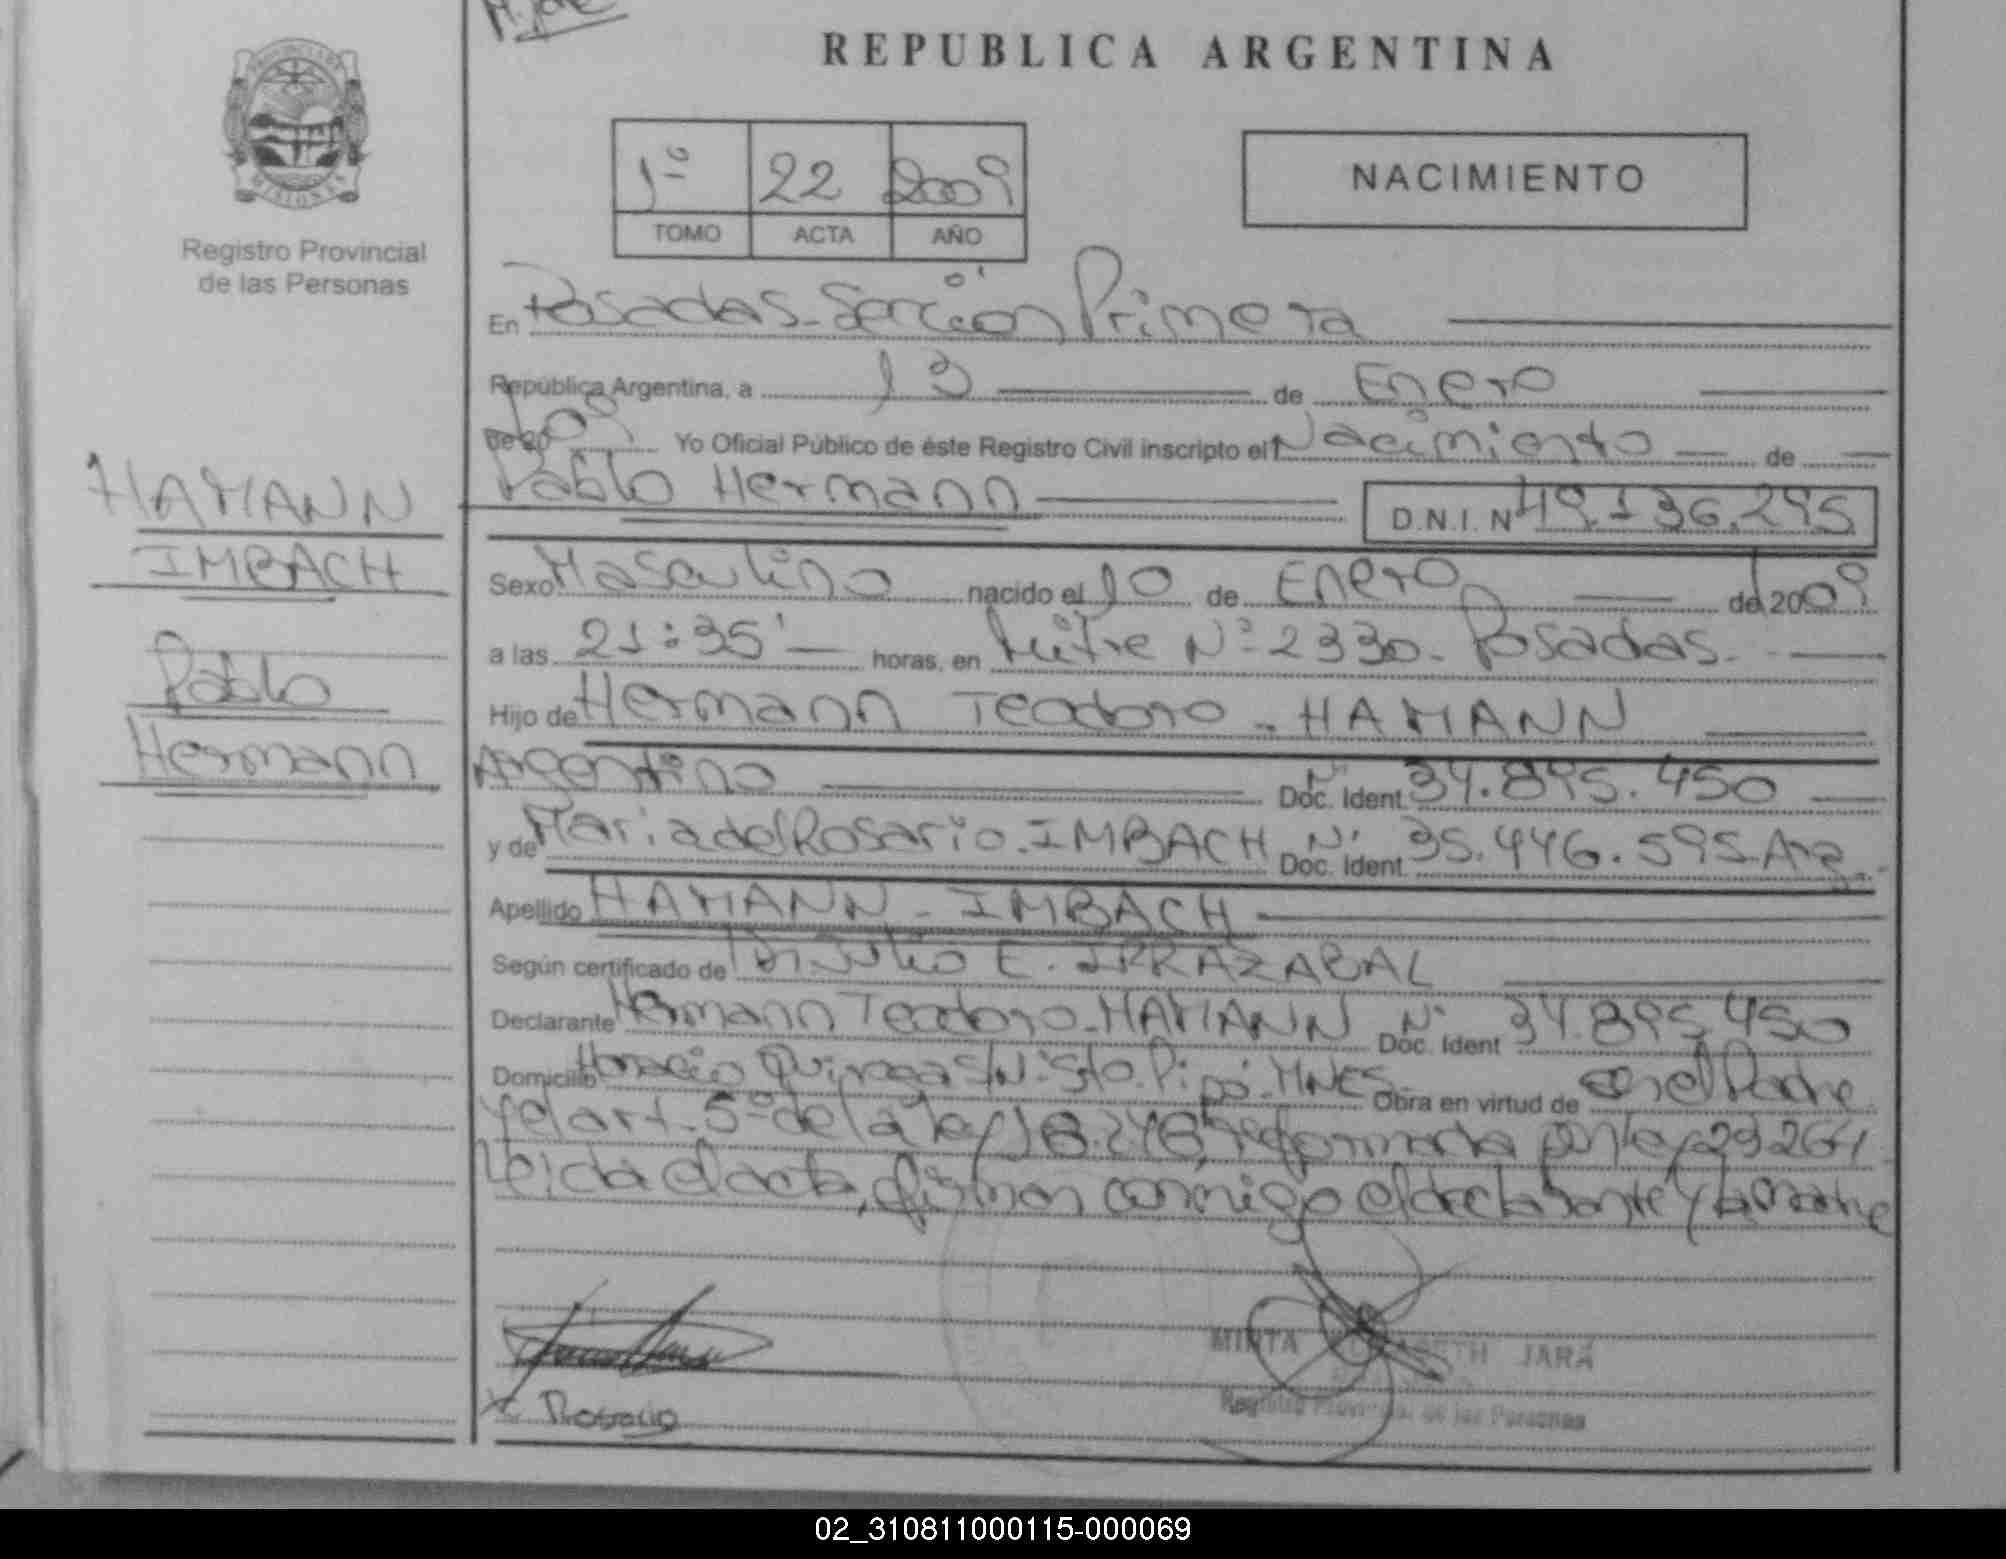 REPUBLICA ARGENTINA
PROVINCIA DE
MISIONES
Registro Provincial
de las Personas
1º 22 2009
TOMO ACTA AÑO
NACIMIENTO
En Posadas - Sección Primera
República Argentina, a 13 de Enero
de 2009 Yo Oficial Público de éste Registro Civil inscripto el Nacimiento de
Pablo Hermann
D.N.I. Nº 49.136.295
HAMANN
IMBACH
Pablo
Hermann
Sexo Masculino nacido el 10 de Enero de 2009
a las 21:35' horas, en Mitre Nº 2330 - Posadas.
Hijo de Hermann Teodoro - HAMANN
Argentino Doc. Ident. Nº 34.895.450
y de Maria del Rosario - IMBACH Doc. Ident. Nº 35.446.595 Arg.
Apellido HAMANN - IMBACH
Según certificado de Dr. Julio E. IRRAZABAL
Declarante Hermann Teodoro - HAMANN Doc. Ident Nº 34.895.450
Domicilio Horacio Quiroga S/Nº Sto. Pipó - MNES. Obra en virtud de ser el Padre
y el art. 5º de la ley 18.248, reformada por ley 23264
Leida el acta, firman conmigo el declarante y la madre
Rosario
MIRTA ELIZABETH JARA
Registro Provincial de las Personas
02_310811000115-000069